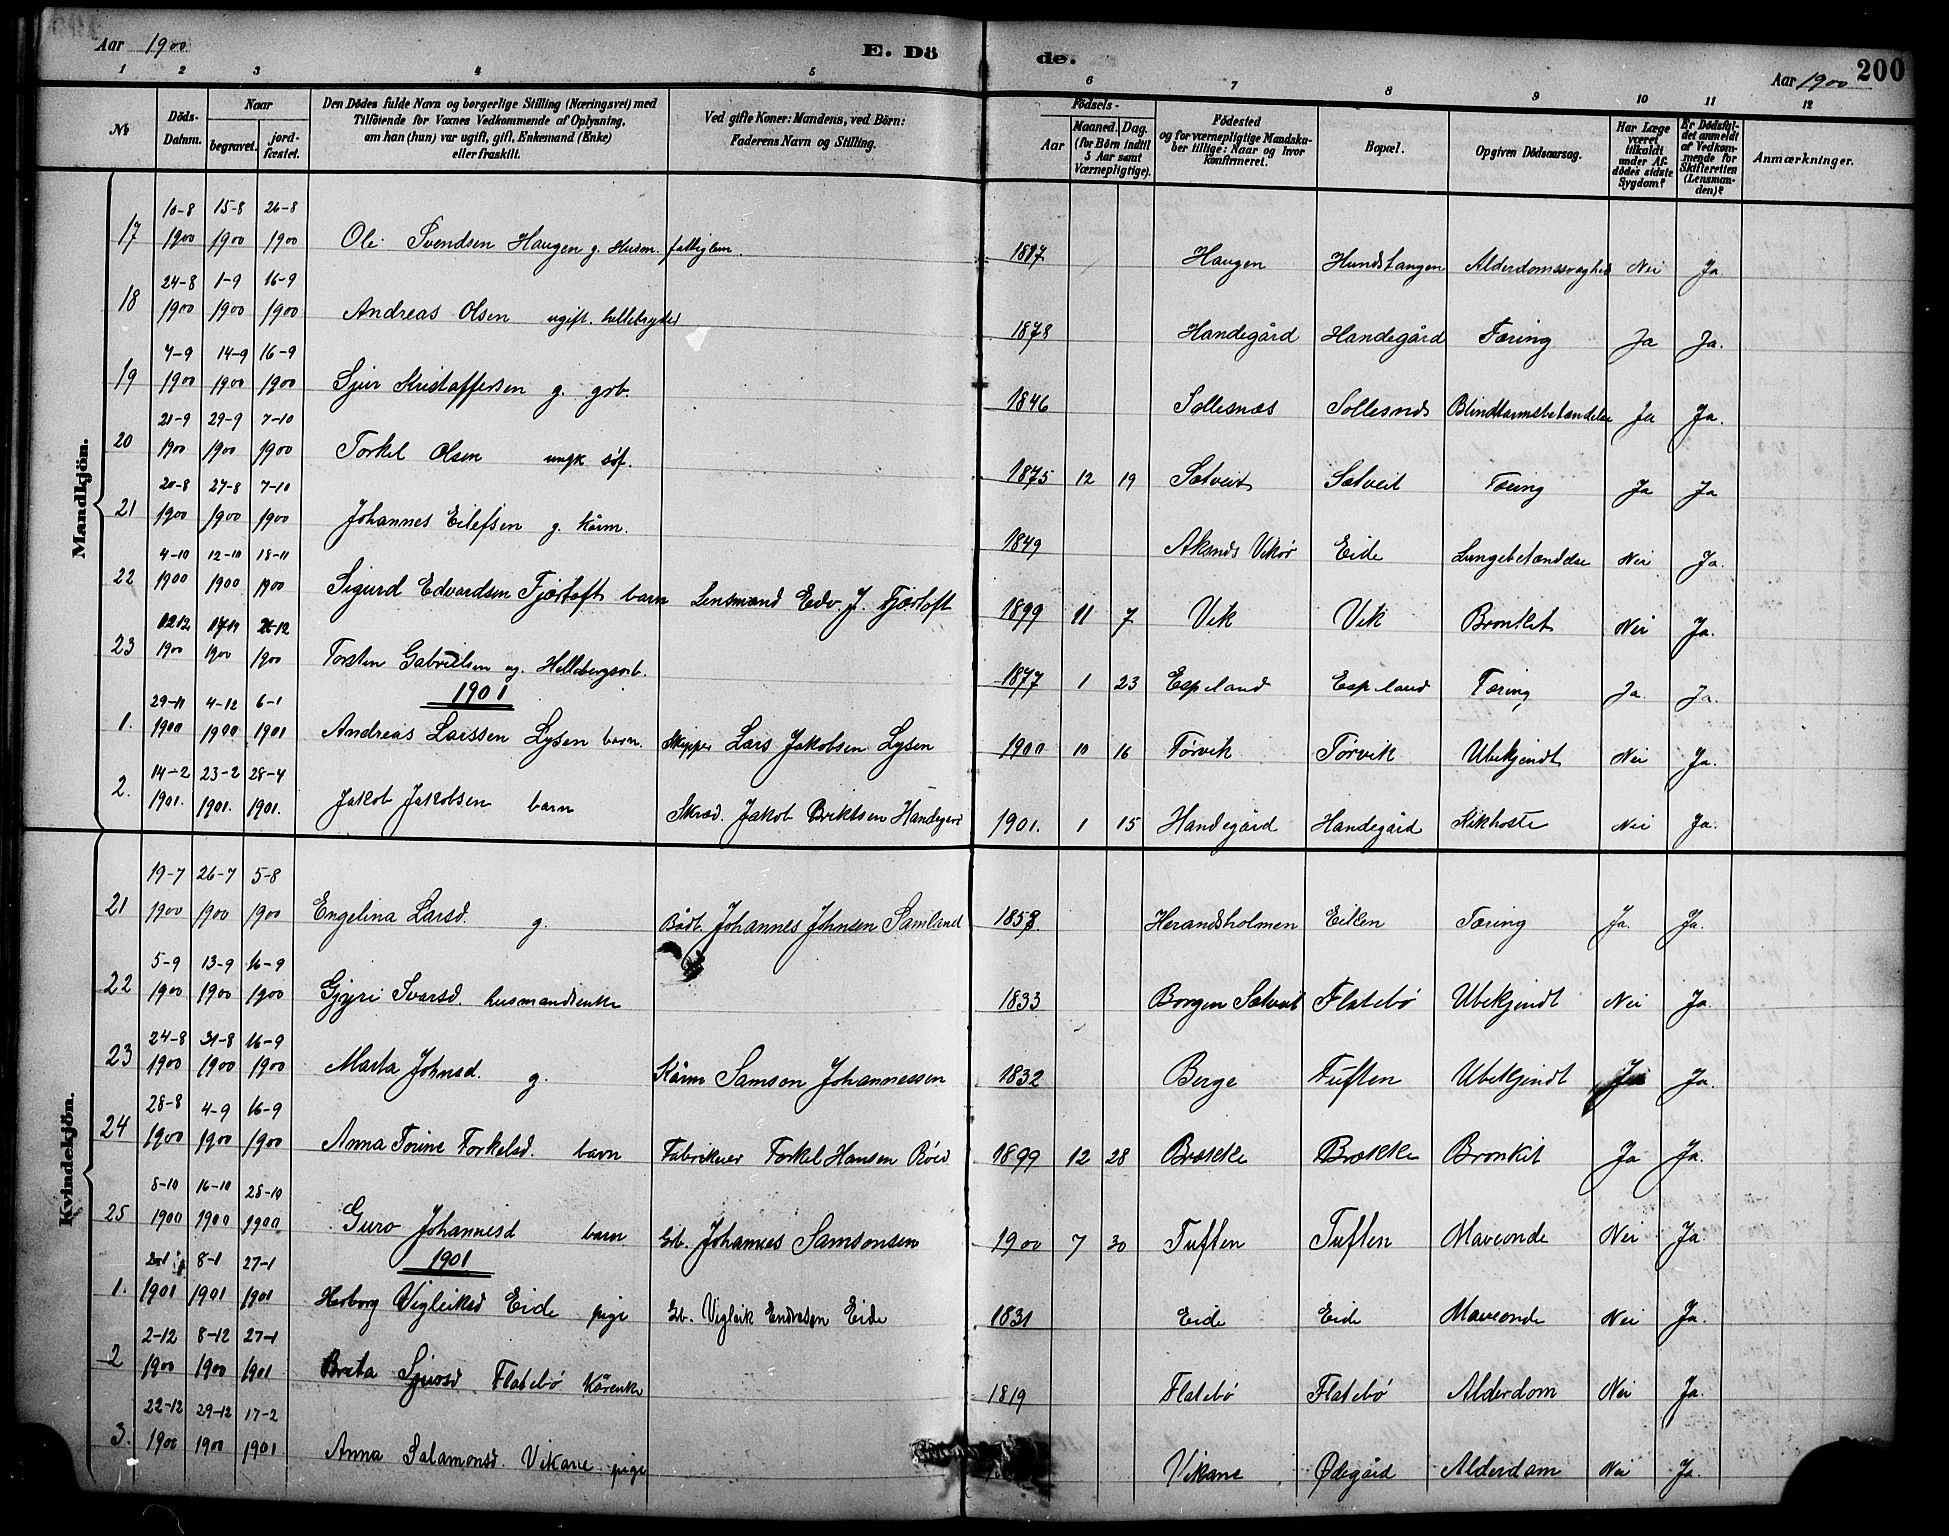 Aar 1900 E. Dö de. Aar 1900 200
1 2 3 4 5 6 7 8 9 10 11 12
No
Döds-Datum.
Naar
begravet.
jordfæstet.
Den Dödes fulde Navn og borgerlige Stilling (Næringsvei) med
Tilföiende for Voxnes Vedkommende af Oplysning,
om han (hun) var ugift, gift, Enkemand (Enke)
eller fraskilt.
Ved gifte Koner: Mandens, ved Börn:
Faderens Navn og Stilling.
Födsels-
Aar
Maaned. Dag.
(for Börn indtil
5 Aar samt
Værnepligtige).
Födested
og for værnepligtige Mandska-
ber tillige: Naar og hvor
konfirmeret.
Bopæl.
Opgiven Dödsaarsag.
Har Læge
været
tilkaldt
under Af-
dödes sidste
Sygdom?
Er Dödsfal-
det anmeldt
af Vedkom-
mende for
Skifteretten
(Lensman-
den)?
Anmærkninger.
Mandkjön.
10-8 15-8 26-8
17 1900 1900 1900 Ole Svendsen Haugen g. Husm. fattiglem. 1817 Haugen Hundstangen Alderdomssvaghed Nei Ja
24-8 1-9 16-9
18 1900 1900 1900 Andreas Olsen ugift. hellebryder 1878 Handegård Handegård Tæring Ja Ja.
7-9 14-9 16-9
19 1900 1900 1900 Sjur Kristoffersen g. grb. 1846 Sollesnæs Sollesnæs Blindtarmsbetændelse Ja Ja.
21-9 29-9 7-10
20 1900 1900 1900 Torkel Olsen ungk søf. 1875 12 19 Sætveit Sætveit Tæring Ja Ja
20-8 27-8 7-10
21 1900 1900 1900 Johannes Eilefsen g. kårm. 1849 Aksnæs Vikør Eide Lungebetændelse Nei Ja.
4-10 12-10 18-11
22 1900 1900 1900 Sigurd Edvardsen Fjørtoft barn Lensmand Edv. J. Fjørtoft 1899 11 7 Vik Vik Bronkit Nei Ja.
23 1900 1900 1900 Torsten Gabrielsen ug. Hellebergsarb. 1877 1 23 Espeland Espeland Tæring Ja Ja.
1901
29-11 4-12 6-1
1. 1900 1900 1901 Andreas Larssen Lysen barn. Skipper Lars Jakobsen Lysen 1900 10 16 Tørvik Tørvik Ubekjendt Nei Ja.
14-2 23-2 28-4
2. 1901. 1901. 1901. Jakob Jakobsen barn Skræd. Jakob Briktsen Handegård 1901. 1 15 Handegård Handegård Kikhoste Nei Ja.
Kvindekjön.
19-7 26-7 5-8
21 1900 1900 1900 Engelina Larsd. g. Bådb. Johannes Johnsen Samland 1858 Herandsholmen Eiken Tæring Ja. Ja.
5-9 13-9 16-9
22 1900 1900 1900 Gjyri Ivarsd. husmandsenke 1833 Borgen Sætveit Flatebø Ubekjendt Nei Ja.
24-8 31-8 16-9
23 1900 1900 1900 Marta Johnsd. g. Kårm Samson Johannessen 1832 Berge Tuften Ubekjendt Ja Ja.
28-8 4-9 16-9
24 1900 1900 1900 Anna Torine Torkelsd. barn Fabrikeier Torkel Hansen 1899 12 28 Brække Brække Bronkit Ja Ja.
8-10 16-10 28-10
25 1900 1900 1900 Guro Johannesd barn Gb. Johannes Samsonsen 1900 7 30 Tuften Tuften Maveonde Nei Ja.
1901
2-1 8-1 27-1
1. 1901 1901 1901 Herborg Vigleiksd Eide pige Gb. Vigleik Endresen Eide 1831 Eide Eide Maveonde Nei Ja.
2-12 8-12 27-1
2 1900 1900 1901 Brita Sjursd Flatebø kårenke 1819 Flatebø Flatebø Alderdom Nei Ja.
22-12 29-12 17-2
3. 1900 1900 1901. Anna Salamonsd. Vikane pige Vikane Ødegård Alderdom Nei Ja.